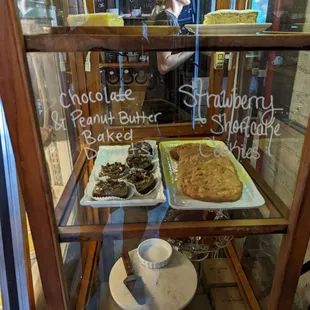 Chocolate
& Peanut Butter
Baked
Strawberry
Shortcake
Cookies